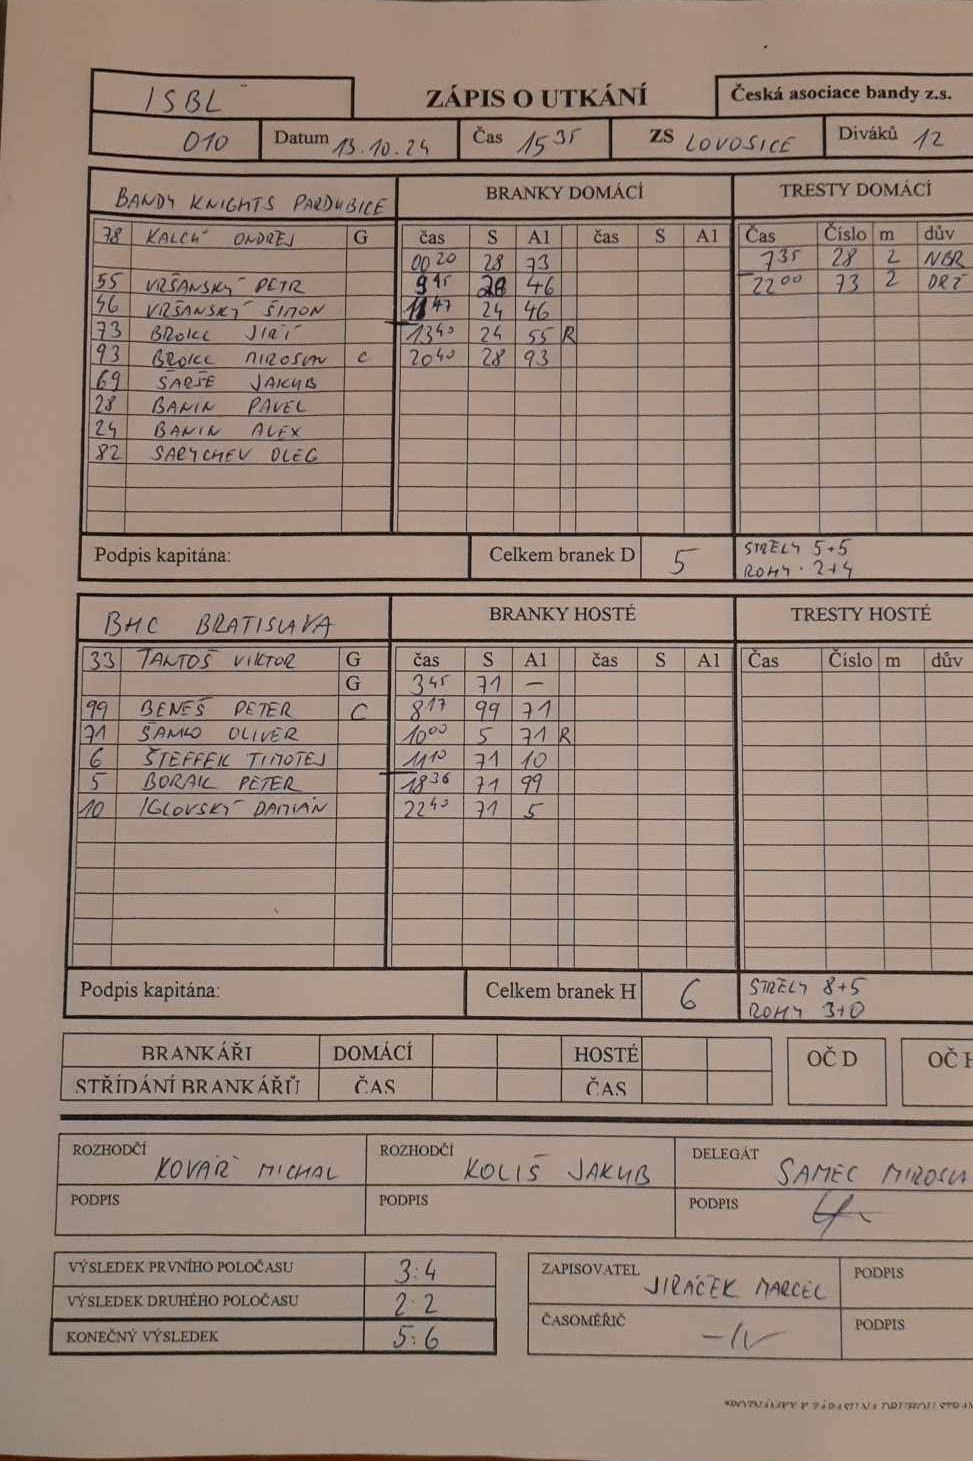 ISBL ZÁPIS O UTKÁNÍ Česká asociace bandy z.s.
010 Datum 13.10.24 Čas 15 35 ZS LOVOSICE Diváků 12
BANDY KNIGHTS PARDUBICE BRANKY DOMÁCÍ TRESTY DOMÁCÍ
78 KALCŮ ONDREJ G čas S A1 čas S A1 Čas Číslo m dův
00 20 28 73 7 35 28 2 NBR
55 VRŠANSKÝ PETR 9 45 28 46 22 00 73 2 DRŽ
46 VRŠANSKÝ ŠIMON 47 24 46
73 BROKL JIŘÍ 13 40 24 55 R
93 BROKL MIROSLAV C 20 40 28 93
69 ŠARŠE JAKUB
28 BANIN PAVEL
24 BANIN ALEX
82 SARYCHEV OLEG
Podpis kapitána: Celkem branek D 5 STRELY 5+5
ROHY · 2+4
BHC BRATISLAVA BRANKY HOSTÉ TRESTY HOSTÉ
33 TANTOŠ VIKTOR G čas S A1 čas S A1 Čas Číslo m dův
G 3 45 71 —
99 BENEŠ PETER C 8 17 99 71
71 ŠAMKO OLIVER 10 00 5 71 R
6 ŠTEFFEK TIMOTEJ 11 10 71 10
5 BORAK PETER 18 36 71 99
10 IGLOVSKÝ DAMIÁN 22 40 71 5
Podpis kapitána: Celkem branek H 6 STRELY 8+5
ROHY 3+0
BRANKÁŘI DOMÁCÍ HOSTÉ OČ D OČ H
STŘÍDÁNÍ BRANKÁŘŮ ČAS ČAS
ROZHODČÍ KOVÁŘ MICHAL ROZHODČÍ KOLIŠ JAKUB DELEGÁT SAMEC MIROSLA
PODPIS PODPIS PODPIS
VÝSLEDEK PRVNÍHO POLOČASU 3:4 ZAPISOVATEL JIRÁČEK MARCEL PODPIS
VÝSLEDEK DRUHÉHO POLOČASU 2:2
KONEČNÝ VÝSLEDEK 5:6 ČASOMĚŘIČ —"— PODPIS